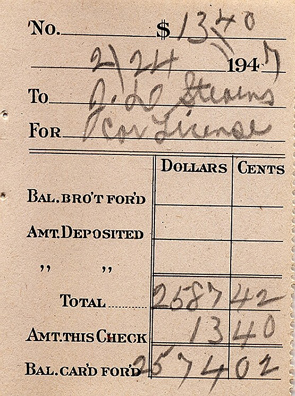 No. $ 13 40
2/24 1947
To D. W. Stevens
For Car License
DOLLARS CENTS
BAL. BRO'T FOR'D
AMT. DEPOSITED
" "
TOTAL 2587 42
AMT. THIS CHECK 13 40
BAL. CAR'D FOR'D 2574 02